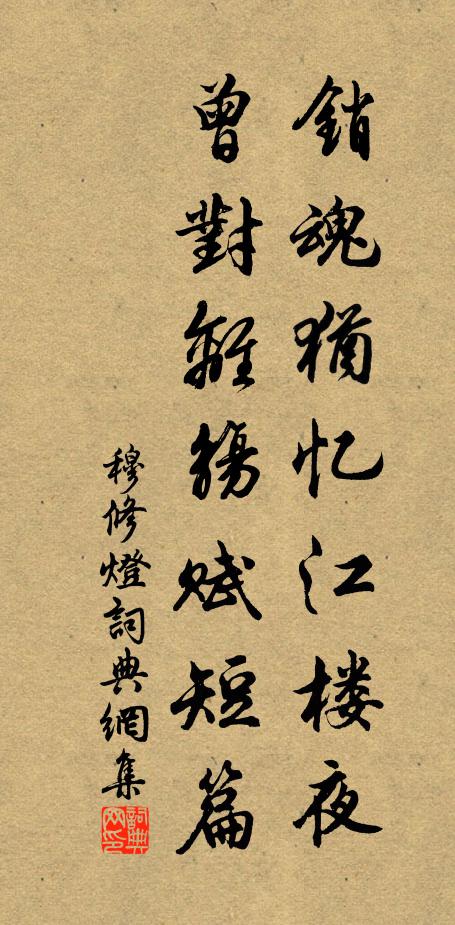 銷魂猶忆江楼夜
曾對離觴賦短篇
穆修燈詞典網集
詞典网印